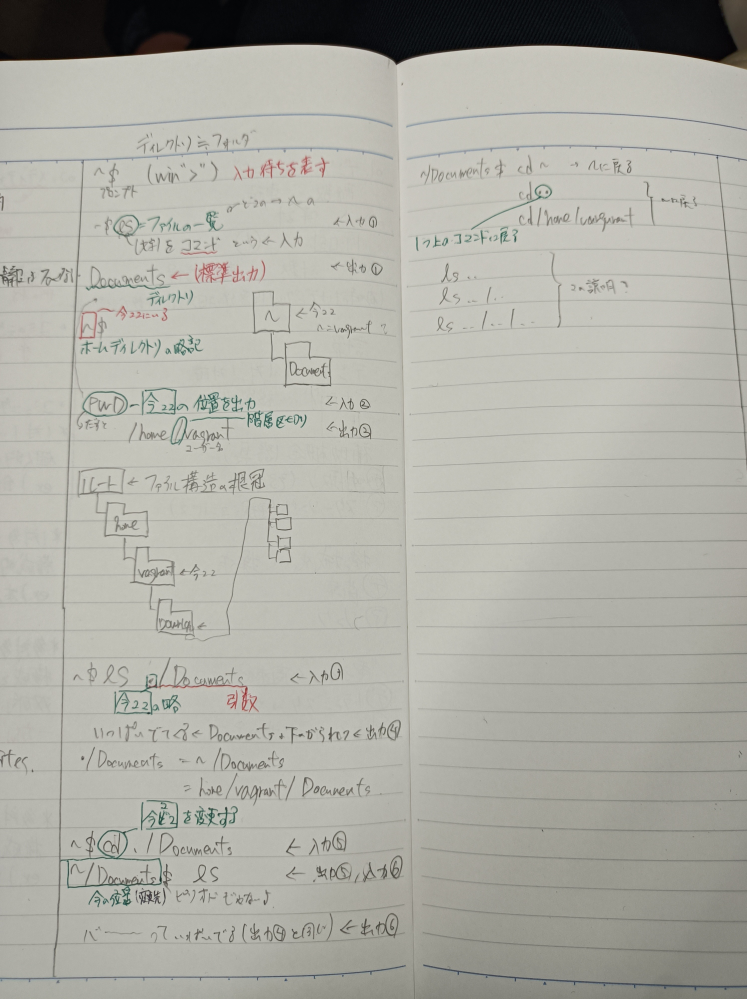 ディレクトリ ≒ フォルダ
~$ (win ">") 入力待ちを表す
プロンプト
~$ ls = ファイルの一覧 ←入力①
をコマンドという ← 入力
Documents ← (標準出力) ←出力①
ディレクトリ
~$ ←今ココにいる
ホームディレクトリの略記
~ ←今ココ
~=vagrant?
Document
PWD - 今ココの位置を出力 ←入力②
/home/vagrant 階層区切り ←出力②
ユーザー名
ルート ← ファイル構造の根冠
home
vagrant ←今ココ
~$ ls ./Documents ←入力④
今ココの略 引数
いっぱいでてくる ← Documents ←出力④
./Documents = ~/Documents
= home/vagrant/Documents
今ココを変更する
~$ cd ./Documents ←入力⑤
~/Documents$ ls ←出力⑤,入力⑥
今の位置 ピリオドじゃないよ
バーーーっていっぱいでる(出力④と同じ) ←出力⑥
~/Documents$ cd ~ → ~に戻る
cd ..
cd /home/vangrant
1つ上のコマンドに戻る
ls ..
ls ../..
ls ../../..
この説明?